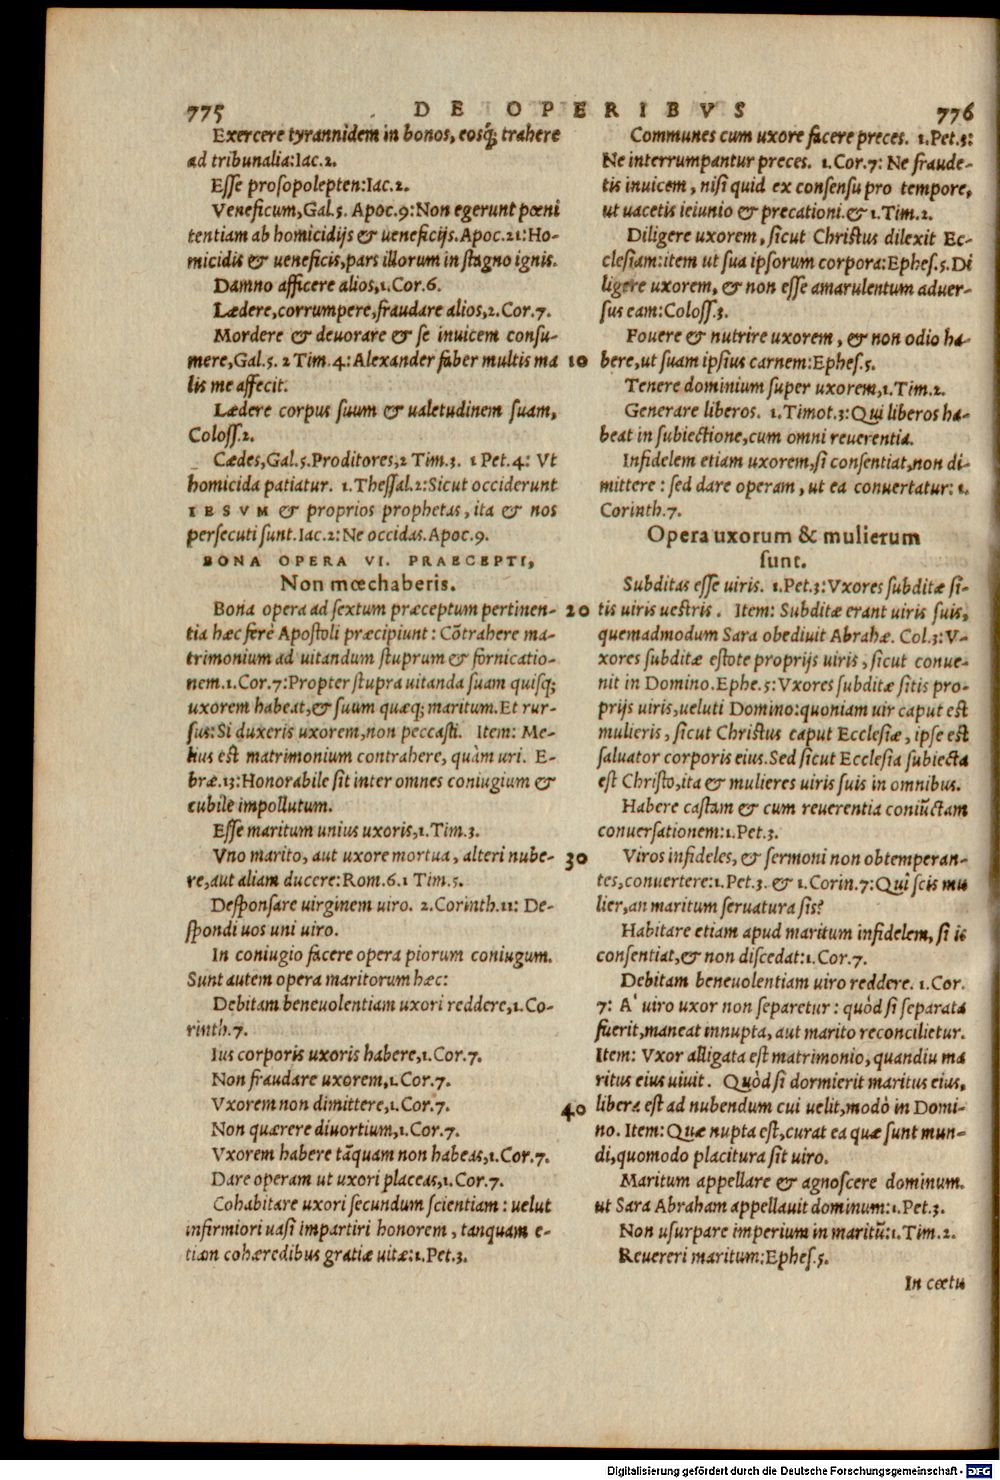 775 DE OPERIBVS 776
Exercere tyrannidem in bonos, eosq́; trahere
ad tribunalia:Iac.2.
Esse prosopolepten:Iac.2.
Veneficum,Gal.5. Apoc.9:Non egerunt pœni
tentiam ab homicidijs & ueneficijs.Apoc.21:Ho-
micidis & ueneficis,pars illorum in stagno ignis.
Damno afficere alios,1.Cor.6.
Lædere,corrumpere,fraudare alios,2.Cor.7.
Mordere & deuorare & se inuicem consu-
mere,Gal.5. 2 Tim.4:Alexander faber multis ma
lis me affecit.
Lædere corpus suum & ualetudinem suam,
Coloss.2.
Cædes,Gal.5.Proditores,2 Tim.3. 1 Pet.4: Vt
homicida patiatur. 1.Thessal.2:Sicut occiderunt
IESVM & proprios prophetas, ita & nos
persecuti sunt.Iac.2:Ne occidas.Apoc.9.
BONA OPERA VI. PRAECEPTI,
Non mœchaberis.
Bona opera ad sextum præceptum pertinen-
tia hæc ferè Apostoli præcipiunt: Cõtrahere ma-
trimonium ad uitandum stuprum & fornicatio-
nem.1.Cor.7:Propter stupra uitanda suam quisq;
uxorem habeat,& suum quæq; maritum.Et rur-
sus:Si duxeris uxorem,non peccasti. Item: Me-
lius est matrimonium contrahere, quàm uri. E-
bræ.13:Honorabile sit inter omnes coniugium &
cubile impollutum.
Esse maritum unius uxoris,1.Tim.3.
Vno marito, aut uxore mortua, alteri nube-
re,aut aliam ducere:Rom.6.1 Tim.5.
Desponsare uirginem uiro. 2.Corinth.11: De-
spondi uos uni uiro.
In coniugio facere opera piorum coniugum.
Sunt autem opera maritorum hæc:
Debitam beneuolentiam uxori reddere,1.Co-
rinth.7.
Ius corporis uxoris habere,1.Cor.7.
Non fraudare uxorem,1.Cor.7.
Vxorem non dimittere,1.Cor.7.
Non quærere diuortium,1.Cor.7.
Vxorem habere tãquam non habeas,1.Cor.7.
Dare operam ut uxori placeas,1.Cor.7.
Cohabitare uxori secundum scientiam: uelut
infirmiori uasi impartiri honorem, tanquam e-
tiam cohæredibus gratiæ uitæ:1.Pet.3.
10
20
30
40
Communes cum uxore facere preces. 1.Pet.3:
Ne interrumpantur preces. 1.Cor.7: Ne fraude-
tis inuicem, nisi quid ex consensu pro tempore,
ut uacetis ieiunio & precationi.& 1.Tim.2.
Diligere uxorem, sicut Christus dilexit Ec-
clesiam:item ut sua ipsorum corpora:Ephes.5.Di
ligere uxorem, & non esse amarulentum aduer-
sus eam:Coloss.3.
Fouere & nutrire uxorem, & non odio ha-
bere,ut suam ipsius carnem:Ephes.5.
Tenere dominium super uxorem,1.Tim.2.
Generare liberos. 1.Timot.3:Qui liberos ha-
beat in subiectione,cum omni reuerentia.
Infidelem etiam uxorem,si consentiat,non di-
mittere: sed dare operam, ut ea conuertatur: 1.
Corinth.7.
Opera uxorum & mulierum
sunt.
Subditas esse uiris. 1.Pet.3:Vxores subditæ si-
tis uiris uestris. Item: Subditæ erant uiris suis,
quemadmodum Sara obediuit Abrahæ. Col.3:V-
xores subditæ estote proprijs uiris, sicut conue-
nit in Domino.Ephe.5:Vxores subditæ sitis pro-
prijs uiris,ueluti Domino:quoniam uir caput est
mulieris, sicut Christus caput Ecclesiæ, ipse est
saluator corporis eius.Sed sicut Ecclesia subiecta
est Christo,ita & mulieres uiris suis in omnibus.
Habere castam & cum reuerentia coniũctam
conuersationem:1.Pet.3.
Viros infideles, & sermoni non obtemperan-
tes,conuertere:1.Pet.3. & 1.Corin.7:Quì scis mu
lier,an maritum seruatura sis?
Habitare etiam apud maritum infidelem, si is
consentiat,& non discedat:1.Cor.7.
Debitam beneuolentiam uiro reddere. 1.Cor.
7: A' uiro uxor non separetur: quòd si separata
fuerit,maneat innupta, aut marito reconcilietur.
Item: Vxor alligata est matrimonio, quandiu ma
ritus eius uiuit. Quòd si dormierit maritus eius,
libera est ad nubendum cui uelit,modò in Domi-
no. Item:Quæ nupta est,curat ea quæ sunt mun-
di,quomodo placitura sit uiro.
Maritum appellare & agnoscere dominum.
ut Sara Abraham appellauit dominum:1.Pet.3.
Non usurpare imperium in maritũ:1.Tim.2.
Reuereri maritum:Ephes.5.
In cœtu
Digitalisierung gefördert durch die Deutsche Forschungsgemeinschaft - DFG